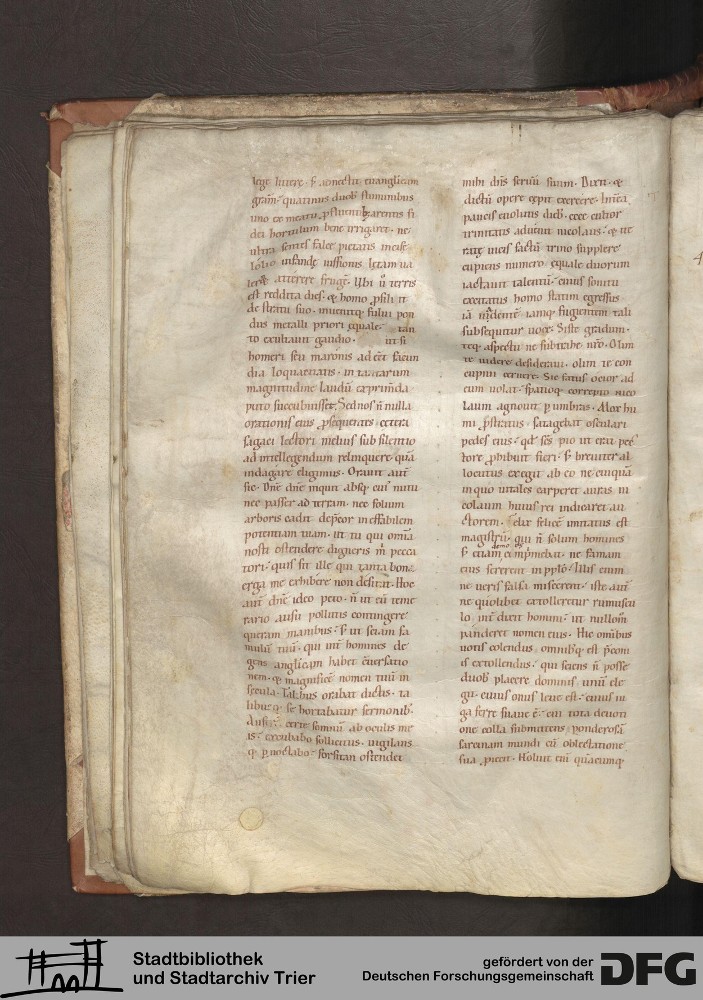 lege litterę · s; adnectit euangelicam
gram̄ · quatinus duob; fluminibus
uno ex meatu
dei hortulum bene irrigaret · ne
ultra sentis falce pietatis
est reddita dies · & homo ꝓsili it
de stratu suo · inuenitq; fului pon
dus metalli priori equale · tan
to exultauit gaudio · ut si
homeri seu maronis adēēt facun
dia loquacitatis · in tantarum
magnitudine laudū exprimēda
puto succubuisset · Sed nos n̄ nulla
orationis eius ꝓsequentes · cetera
sagaci lectori melius sub silentio
ad intellegendum relinquere quā
indagare eligimus · Orauit aut̄
sic · Dn̄e dn̄e inquit absq; cui' nutu
nec passer ad terram · nec folium
arboris cadit · dep̄cor ineffabilem
potentiam tuam · ut tu qui omīa
nosti ostendere digneris m̄ pecca
tori · quis sit ille qui tanta bona
erga me exhibere non desitat · Hoc
aut̄ dn̄e ideo peto · n̄ ut eū teme
rario ausu pollutis contingere
queram manibus · s; ut sciam fa
mulū tuū · qui int̄ homines de
gens anglicam habet ƈuersatio
nem · & magnificē nomen tuū in
secula · Talibus orabat dictis · ta
libusq; se hortabatur sermonib;
certe somnū ab oculis me
is · excubabo sollicitus · uigilans
q; ꝑnoctabo · forsitan ostendet
mihi dn̄s seruū suum · Dixit · &
dictū opere cepit exercere · Itaq;
paucis euolutis dieb; · ecce cultor
trinitatis aduenit nicolaus · & ut
ratę uicis factū trino supplere
cupiens numero · equale duorum
iactauit talentū · cuius sonitu
excitatus homo statim egressus
subsequitur uoce · Siste gradum ·
teq; aspectu ne subtrahe nr̄o · Olim
te uidere desideraui · olim te con
cupiui cernere · Sic fatus ocior ad
eum uolat · spatioq; correpto nico
laum agnouit ꝑ umbras · Mox hu
mi ꝓstratus · satagebat osculari
pedes eius · qd̄ sc̄s pio ut erat pec
tore ꝓhibuit fieri · s; breuiter al
locutus exegit ab eo ne cuiquā
in quo uitales carperet auras ni
colaum huius rei indicaret au
ctorem · felix felicē imitatus est
magistrū · qui n̄ solum homines
s; etiam demones cōpmebat · ne famam
eius sererent in pp̄lo · Illis enim
ne ueris falsa miscerent · iste aut̄
ne quolibet extolleretur rumuscu
lo int̄ dixit homini · ut nullom̄
panderet nomen eius · Hic om̄ibus
uotis colendus · omnibq; est p̄coni
is extollendus · qui sciens n̄ posse
duob; placere dominis · unū ele
git · cuius onus leue est · cuius iu
ga ferre suaue ē · cui tota deuoti
one colla submittens · ponderosā
sarcinam mundi cū oblectatione
sua ꝓiecit · Noluit enī quaecumq;
Stadtbibliothek
und Stadtarchiv Trier
gefördert von der
Deutschen Forschungsgemeinschaft
DFG